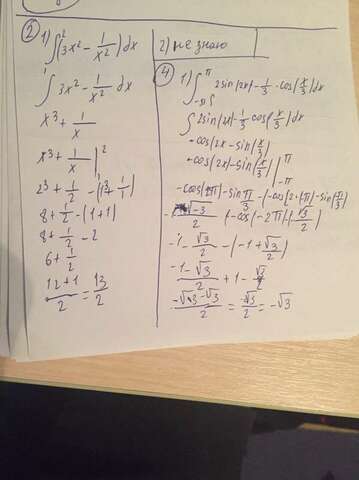 ② 1) ∫₁² (3x² - 1/x²) dx
∫ 3x² - 1/x² dx
x³ + 1/x
x³ + 1/x |²
2³ + 1/2 - (1³ + 1/1)
8 + 1/2 - (1+1)
8 + 1/2 - 2
6 + 1/2
(12+1)/2 = 13/2
2) не знаю
④ 1) ∫ 2sin(2x) - 1/3 · cos(x/3) dx
∫ 2sin(2x) - 1/3 cos(x/3) dx
-cos(2x) - sin(x/3)
-cos(2x) - sin(x/3) |
-cos(2π) - sin π/3 - (-cos(2·(-π)) - sin(
-1 - √3/2 - (-1 + √3/2)
(-√3 - √3)/2 = = -√3